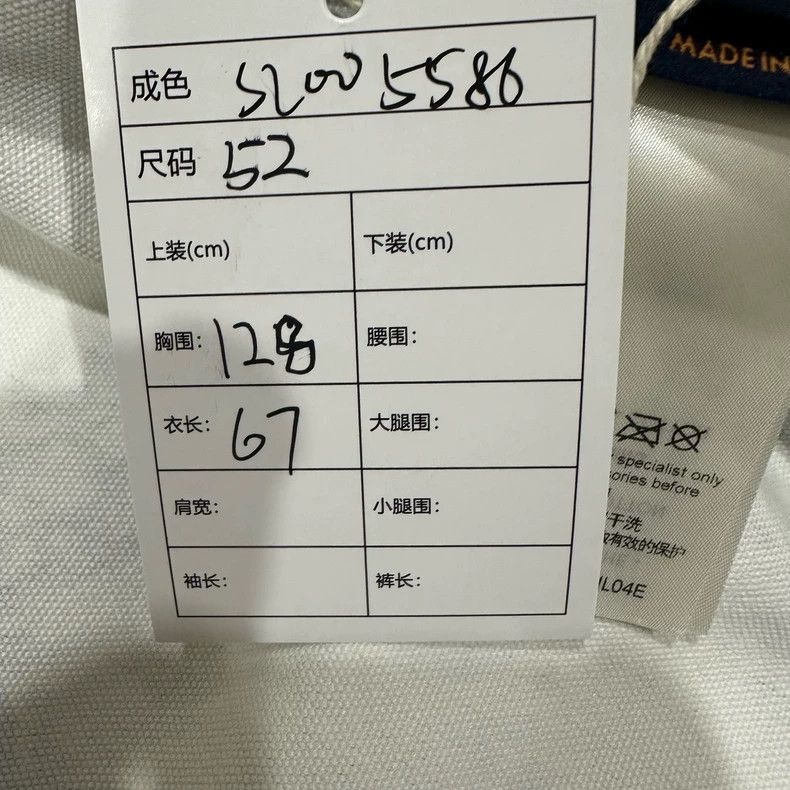 成色 SL00 5586
尺码 52
上装(cm) 下装(cm)
胸围: 128 腰围:
衣长: 67 大腿围:
肩宽: 小腿围:
袖长: 裤长:
MADE IN
specialist only
ories before
干洗
有效的保护
L04E